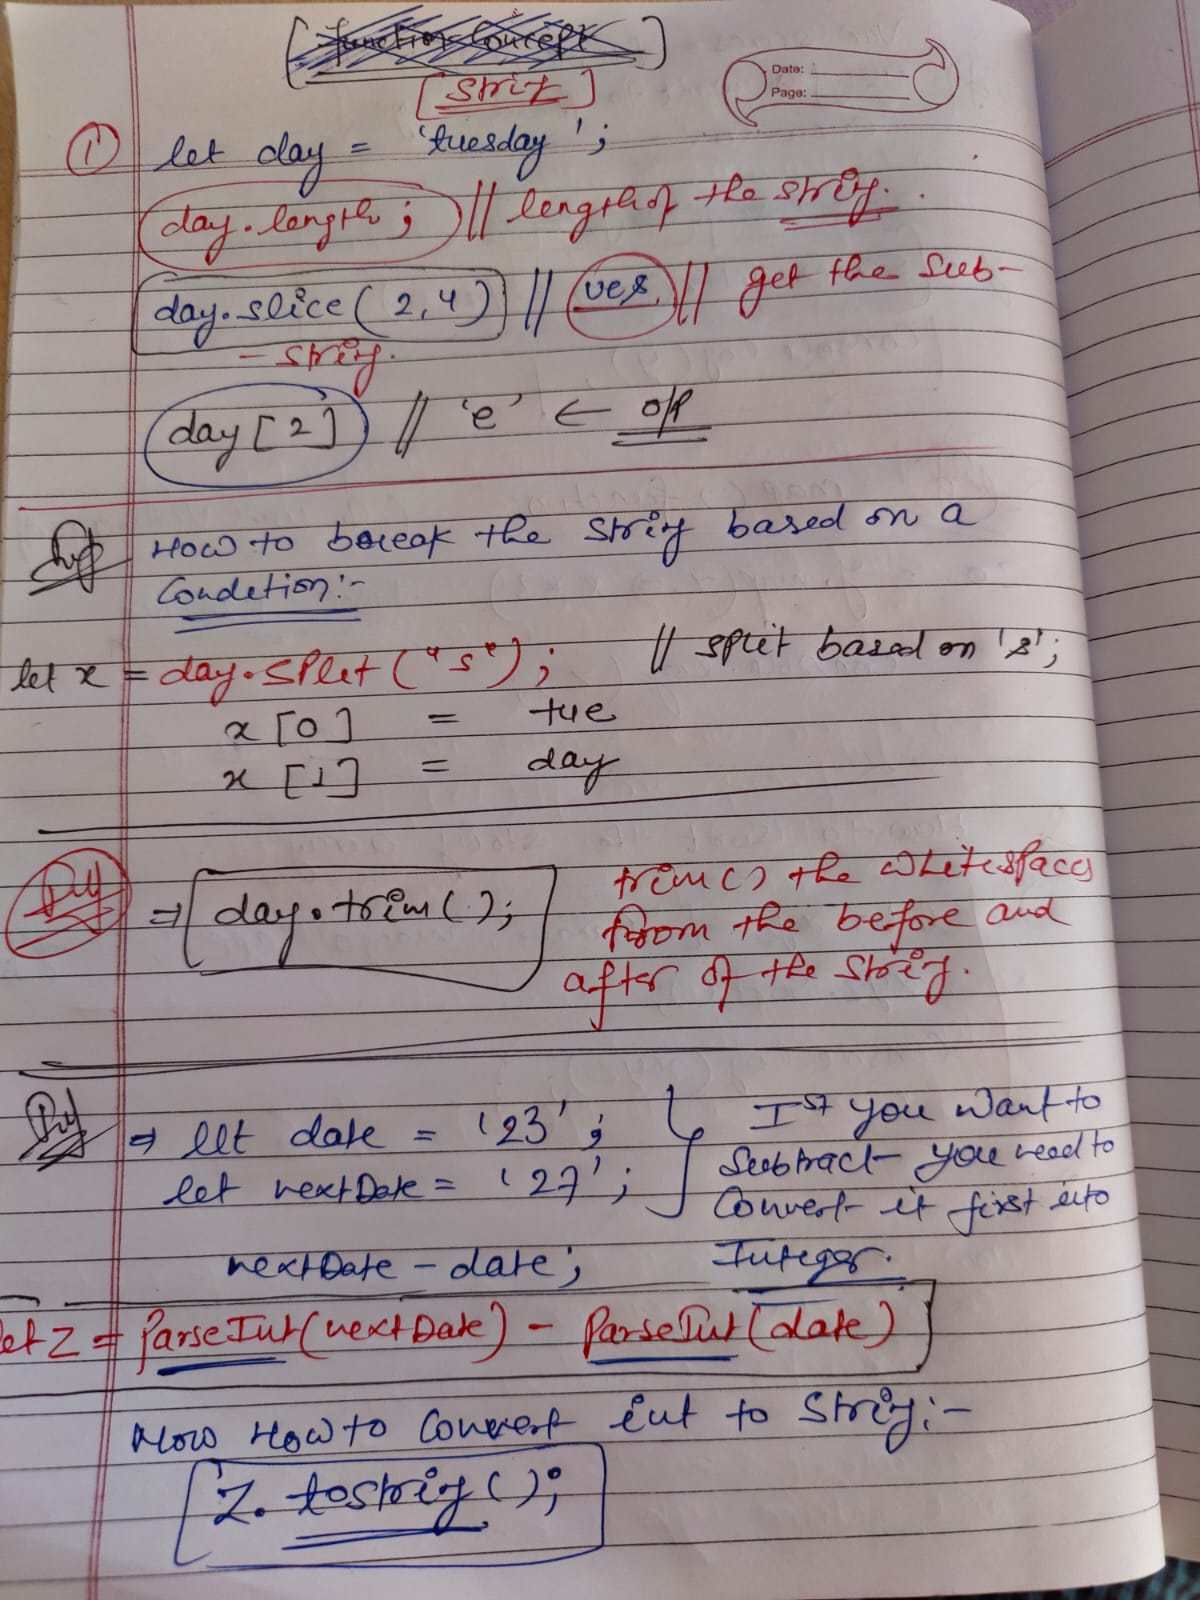 [String]
Date:
Page:
① let day = 'tuesday';
day.length; // length of the string.
day.slice(2,4) // ues // get the Sub-
- string.
day[2] // 'e' ← o/p
How to break the string based on a
Condetion:-
let x = day.split("s"); // split based on 's';
x[0] = tue
x[1] = day
⇒ day.trim(); trim() the whitespaces
from the before and
after of the string.
⇒ let date = '23'; Ist you want to
let nextDate = '27'; Subtract you need to
Convert it first into
nextDate - date; Integer.
let z = parseInt(nextDate) - ParseInt(date)
Now How to Convert int to String:-
Z.tostring();